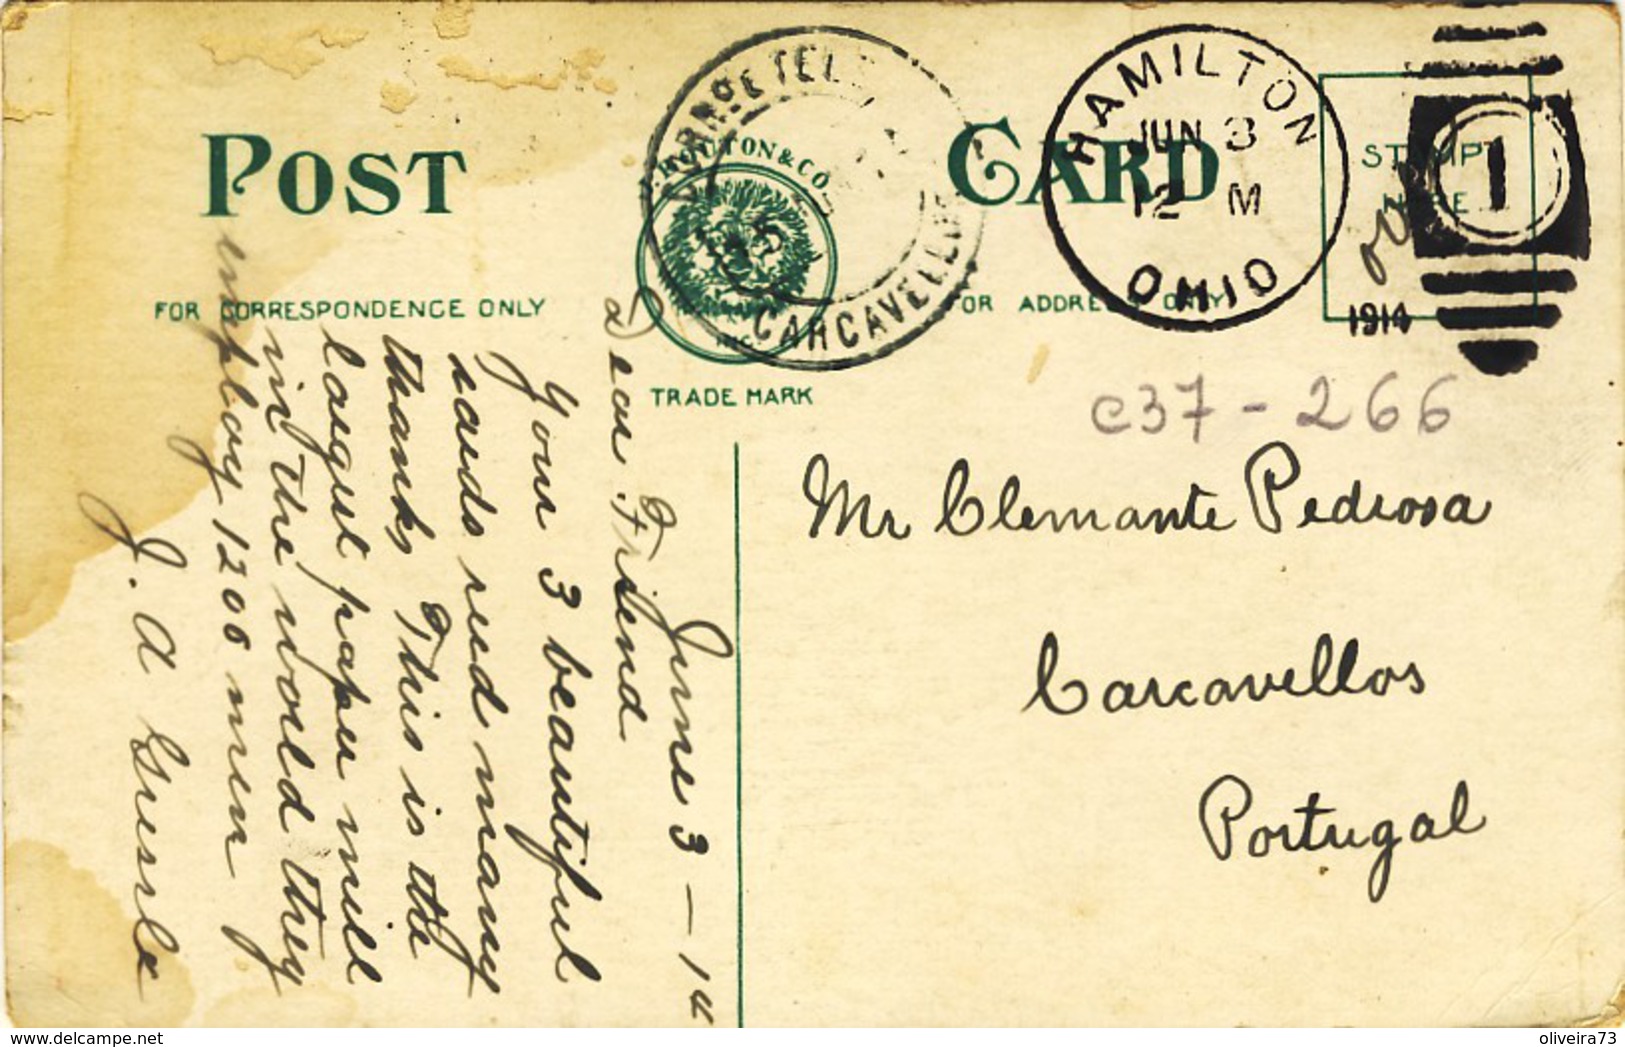 POST CARD
KRAUTON & CO.
FOR CORRESPONDENCE ONLY
FOR ADDRESS ONLY
TRADE MARK
STAMP
HERE
HAMILTON
JUN 3
12 M
OHIO
1914
1
CARCAVELLOS
C37-266
Mr Clemante Pedrosa
Carcavellos
Portugal
June 3 - 14
Dear Friend
Your 3 beautiful
cards recd many
thanks This is the
largest paper mill
in the world they
employ 1200 men
J. A
delcampe.net
oliveira73